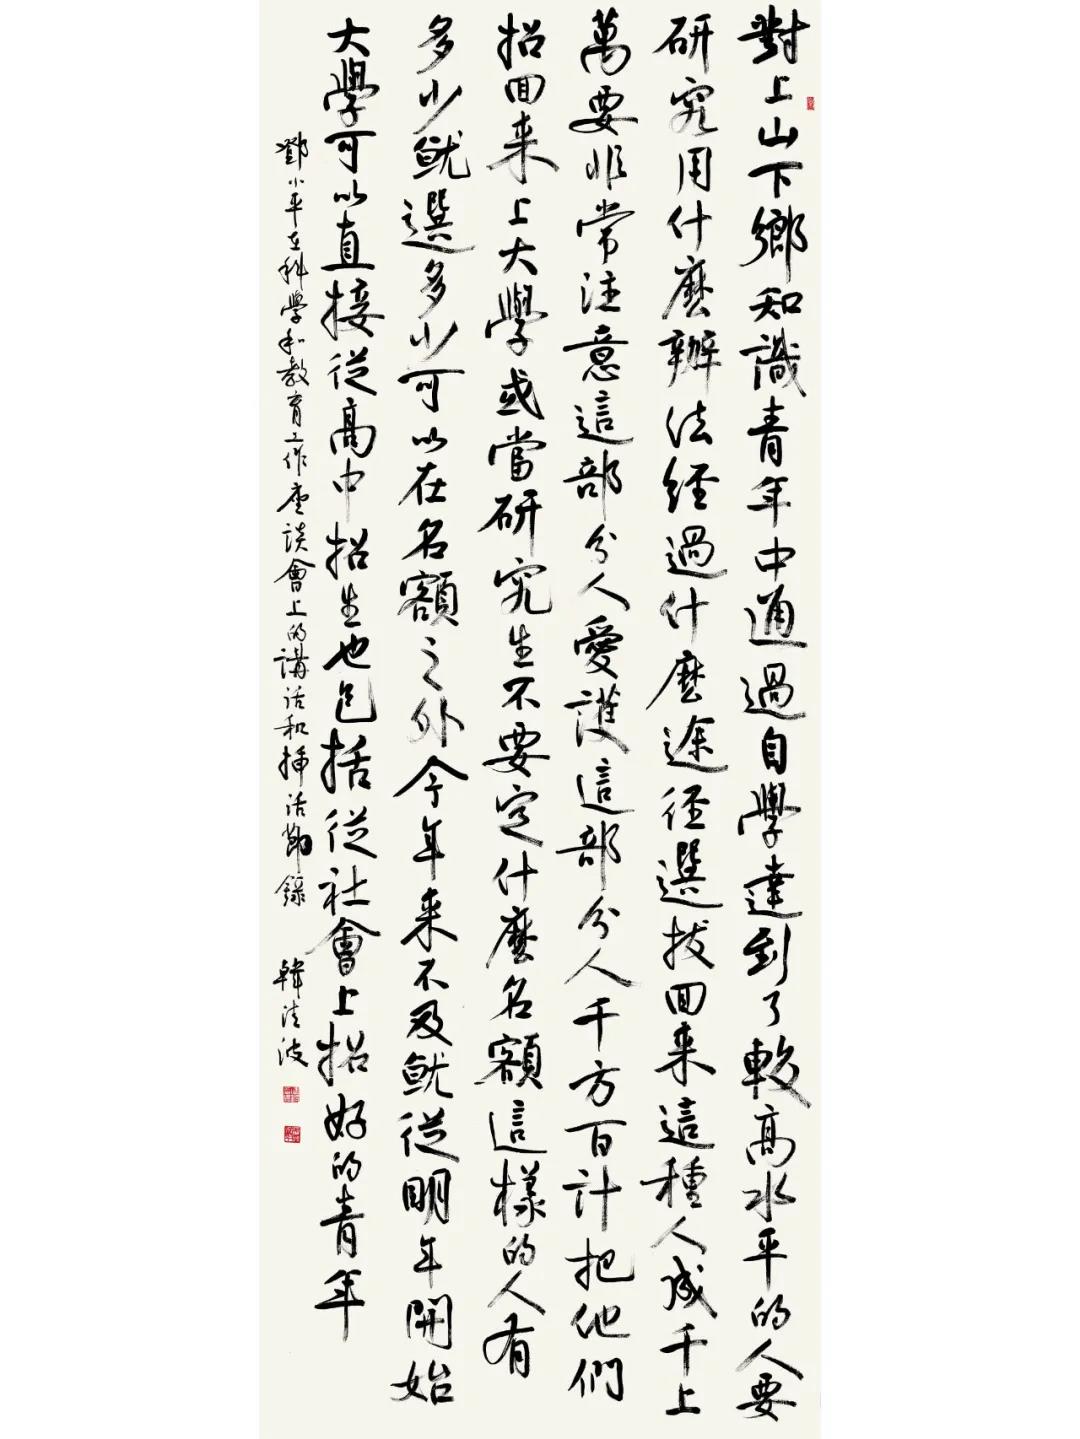 對上山下鄉知識青年中通過自學達到了較高水平的人要
研究用什麼辦法經過什麼途徑選拔回来這種人成千上
萬要非常注意這部分人愛護這部分人千方百計把他們
招回来上大學或當研究生不要定什麼名額這樣的人有
多少就選多少可以在名額之外今年来不及就從明年開始
大學可以直接從高中招生也包括從社會上招好的青年
鄧小平在科學和教育工作座談會上的講話和插話節錄
韓清波